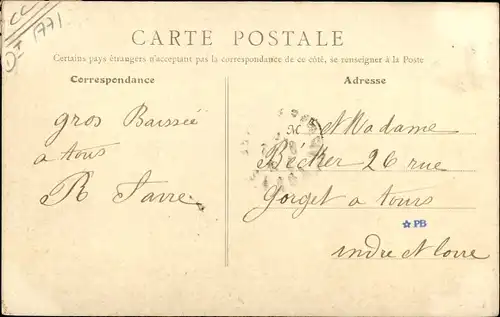 1771
CARTE POSTALE
Certains pays étrangers n'acceptant pas la correspondance de ce côté, se renseigner à la Poste
Correspondance
Adresse
gros Baisseé
a tous
R Favre
M et Madame
Becker 26 rue
Gorget a tours
☆PB
indre et loire